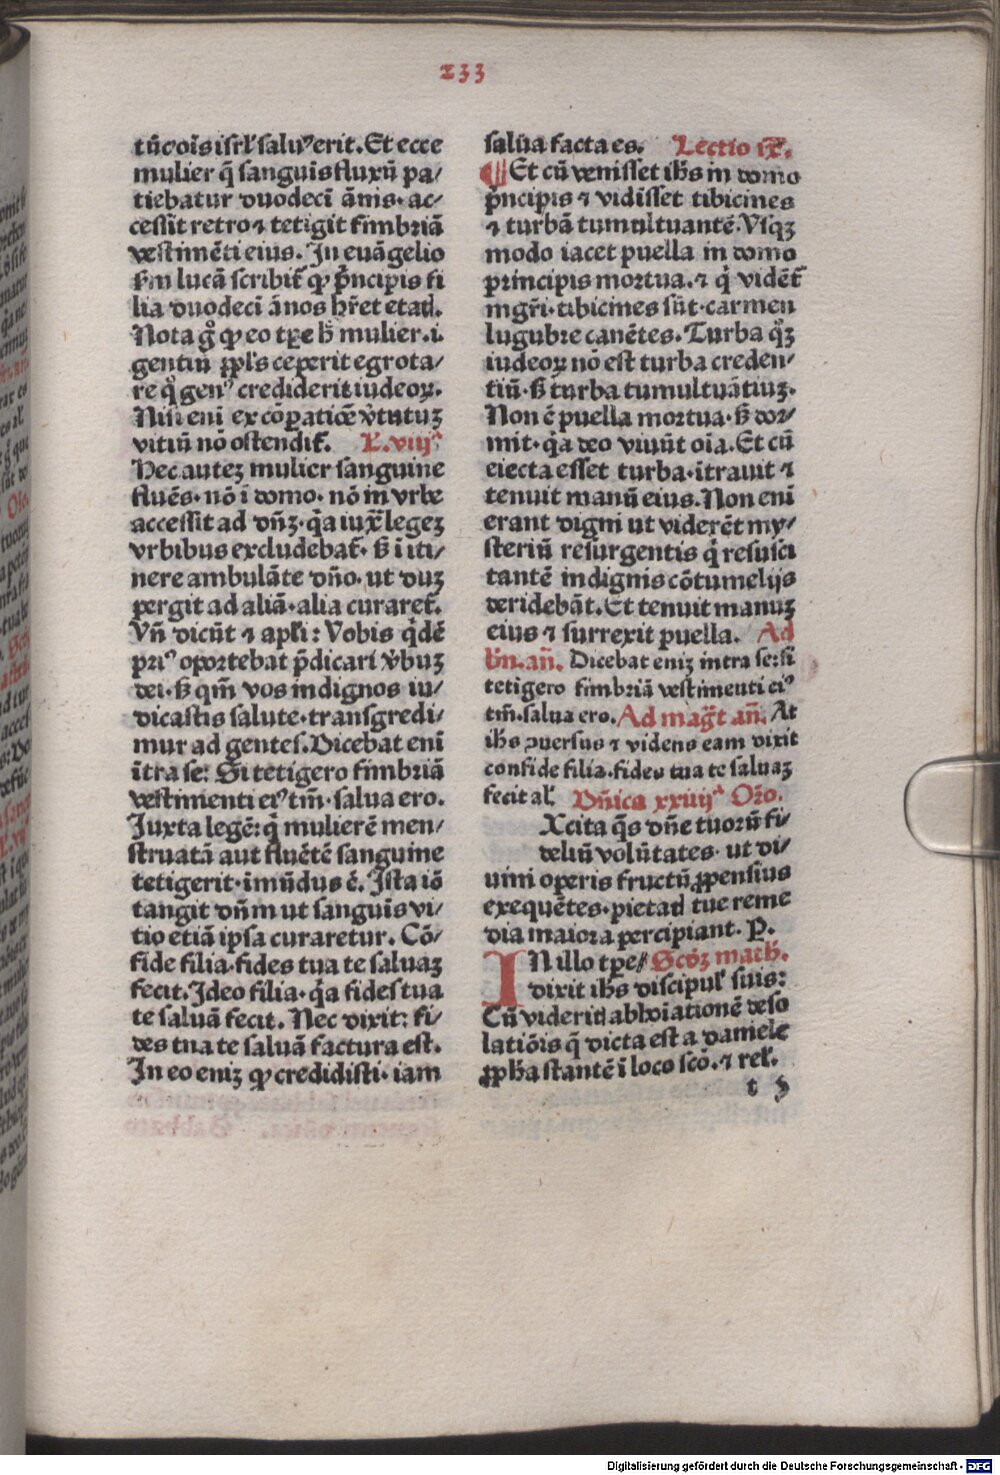 233
tū ꝯoīs isrl̓ saluꝰ erit. Et ecce
mulier q̄ sanguis fluxū pa/
tiebatur duodeci ānis· ac/
cessit retro ⁊ tetigit fimbriā
vestimēti eius. In euāgelio
lucā scribit̄ ꝙ p̄ncipis fi
lia duodeci ānos hr̄et etatē.
Nota gͦ ꝙ eo tꝑe mulier .i.
gentiū ꝓpl̓s ceperit egrota/
re qͣ genꝰ crediderit iudeoꝝ.
Nisi eni ex cōpatiōe v̓tutuꝫ
vitiū nō ostendit̄. L. viijꝰ
Hec auteꝫ mulier sanguine
fluēs· nō i domo· nō in vrbe
accessit ad dn̄ꝫ· q̓a iuxͣ legeꝫ
vrbibus excludebat̄· sꝫ i iti/
nere ambulāte dn̄o· ut duꝫ
pergit ad aliā· alia curaret̄.
Vn̄ dicūt ⁊ apl̓i: Vobis q̓dē
priꝰ oportebat p̄dicari v̓buꝫ
dei· sꝫ qm̄ vos indignos iu/
dicastis salute· transgredi/
mur ad gentes. Dicebat eni
ītra se: Si tetigero fimbriā
vestimenti eiꝰ tm̄· salua ero.
Iuxta legē: q̓ mulierē men/
struatā aut fluētē sanguine
tetigerit· imūdus ē. Ista iō
tangit dn̄m ut sanguis vi/
tio etiā ipsa curaretur. Cō/
fide filia· fides tua te saluaꝫ
fecit. Ideo filia· q̓a fides tua
te saluā fecit. Nec dixit: fi/
des tua te saluā factura est.
In eo eniꝫ ꝙ credidisti· iam
salūa facta es. Lectio ix̄.
¶ Et cū venisset ih̄s in domo
p̓ncipis ⁊ vidisset tibicines
⁊ turbā tumultuantē. Vsqꝫ
modo iacet puella in domo
principis mortua. ⁊ q̓ vidēt̄
mgr̄i· tibicines sūt· carmen
lugubre canētes. Turba qͦꝫ
iudeoꝝ nō est turba creden/
tiū· sꝫ turba tumultuātiuꝫ.
Non ē puella mortua· sꝫ dor/
mit· q̓a deo viuūt oīa. Et cū
eiecta esset turba· ītrauit ⁊
tenuit manū eius. Non eni
erant digni ut viderēt my/
steriū resurgentis q̓ resusci
tantē indignis cōtumelijs
deridebāt. Et tenuit manuꝫ
eius ⁊ surrexit puella. Ad
bn̄. an̄. Dicebat eniꝫ intra se: si
tetigero fimbriā vestimenti eiꝰ
tm̄· salua ero. Ad mag̓t an̄. At
ih̄s ꝯuersus ⁊ videns eam dixit
confide filia· fides tua te saluaꝫ
fecit al̓. Dn̄ica xxiiijꝰ Or̄o.
Xcita q̄s dn̄e tuorū fi/
deliū volūtates· ut di/
uini operis fructū ꝓpensius
exequētes· pietatꝭ tue reme
dia maiora percipiant. P.
IN illo tꝑe/ Scd̓ꝫ math̓.
dixit ih̄s discipul̓ suis:
Cū videritꝭ abhoiationē deso
latiōis q̄ dicta est a daniele
ꝓph̓a stantē i loco scō. ⁊ rel̓.
t 3
Digitalisierung gefördert durch die Deutsche Forschungsgemeinschaft - DFG